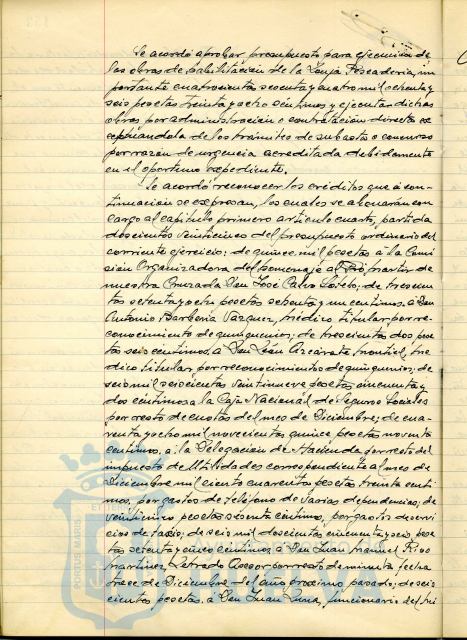 Se acordó aprobar, presupuesto para ejecución de
las obras de habilitación de la Lonja Pescadería, im
portante cuatrocientas sesenta y cuatro mil ochenta y
seis pesetas treinta y ocho céntimos y ejecutar dichas
obras por administración o contratación directa ex
ceptuándola de los trámites de subasta o concurso
por razón de urgencia acreditada debidamente
en el oportuno expediente.
Se acordó reconocer los créditos que a con-
tinuación se expresan, los cuales se abonarán con
cargo al capítulo primero artículo cuarto, partida
doscientos veinticinco del presupuesto ordinario del
corriente ejercicio; de quince mil pesetas a la Comi
sión Organizadora del homenaje al Protomártir de
nuestra Cruzada Don José Calvo Sotelo; de trescien
tas setenta y ocho pesetas ochenta y un céntimos a Don
Antonio Barbería Vazquez, médico titular por re-
conocimiento de quinquenios; de trescientas dos pese
tas seis céntimos a Don León Azcárate Montiel, mé
dico titular por reconocimiento de quinquenios; de
seis mil seiscientas veintinueve pesetas cincuenta y
dos céntimos a la Caja Nacional de Seguros Sociales
por resto de cuotas del mes de Diciembre; de cua-
renta y ocho mil novecientas quince pesetas noventa
céntimos, a la Delegación de Hacienda por resto del
impuesto de Utilidades correspondiente al mes de
Diciembre mil ciento cuarenta pesetas treinta cénti
mos, por gastos de teléfono de varias dependencias; de
veinticinco pesetas sesenta céntimos, por gastos de servi
cios de taxis; de seis mil doscientas cincuenta y seis pese
tas setenta y cinco céntimos a Don Juan Manuel
Martinez, Letrado Asesor por resto de minuta fecha
trece de Diciembre del año próximo pasado; de seis
cientas pesetas a Don Juan, funcionario del
PORTUS MARIS
HUELVA